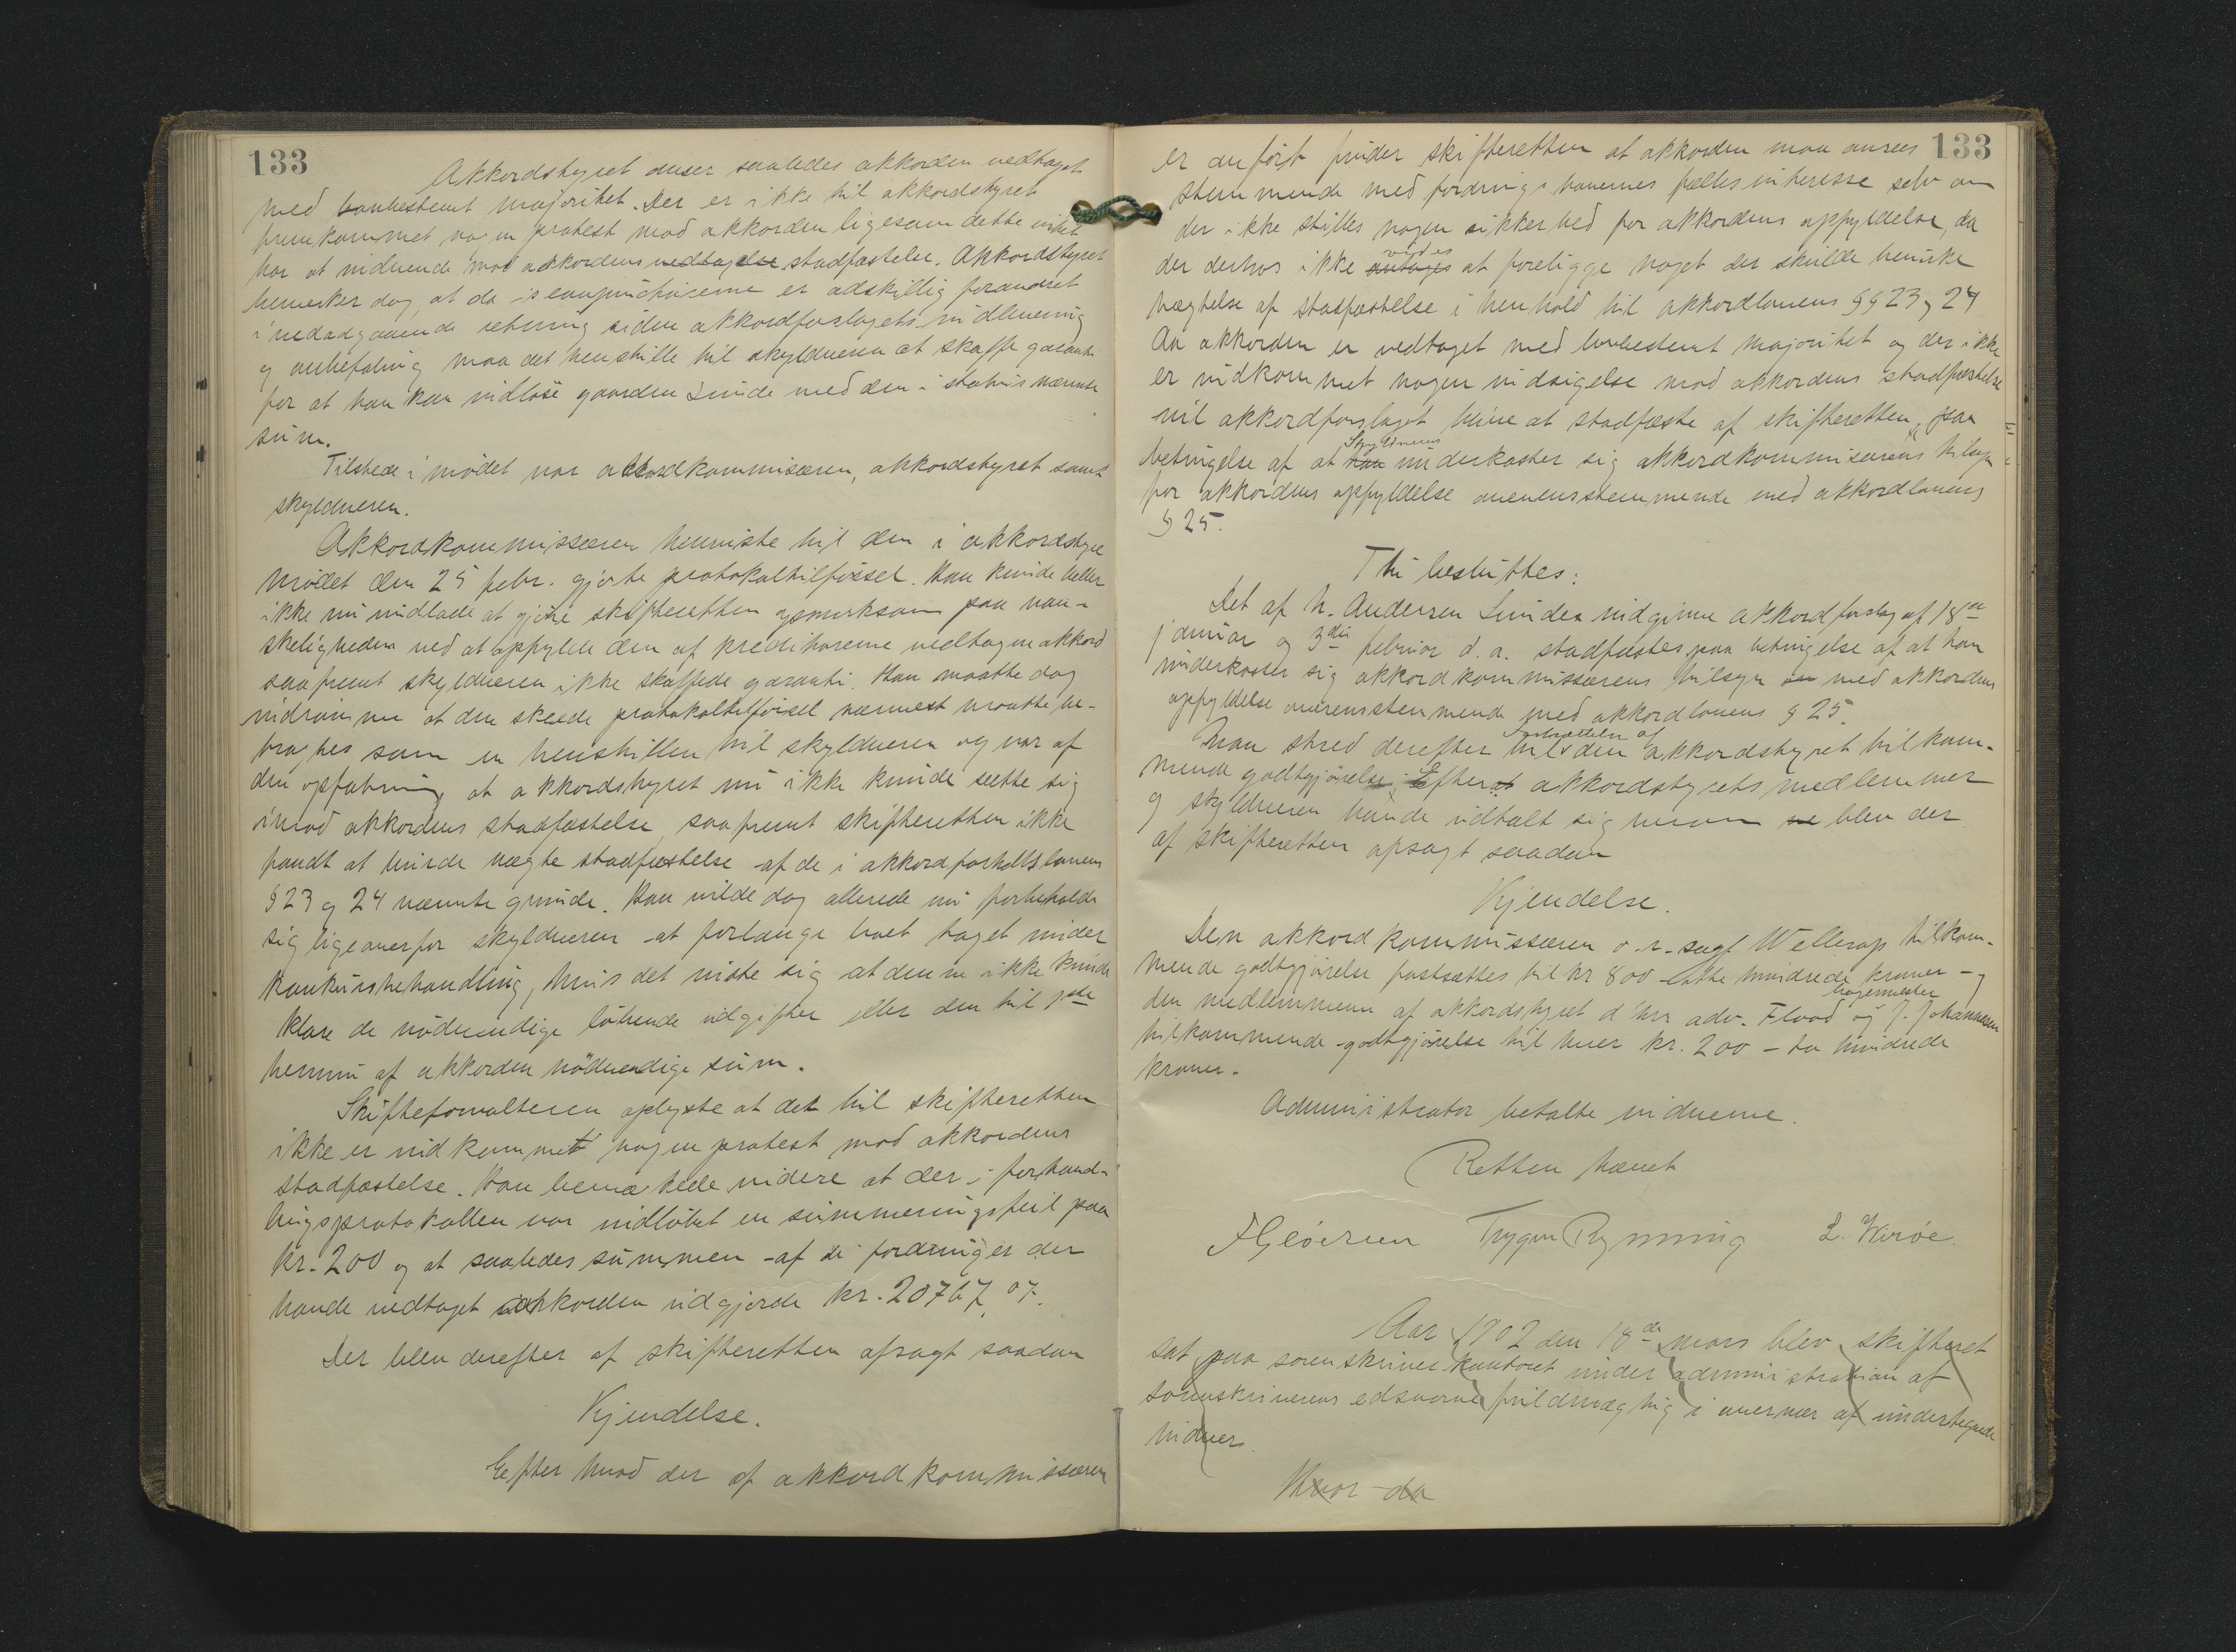 133
Akkordstyret anser saaledes akkorden vedtaget
med lovbestemt majoritet. Der er ikke til akkordstyret
fremkommet nogen protest mod akkorden ligesom dette intet
har at indvende mod akkordens vedtagelse stadfæstelse. Akkordstyret
bemerker dog, at da iskonjunkturerne er adskillig forandret
i nedadgaaende retning siden akkordforslagets indlevering
og anbefaling maa det henstille til skyldneren at skaffe garanti
for at han kan indløse gaarden Lunde med den i status nævnte
sum.
Tilstede i mødet var akkordkommisæren, akkordstyret samt
skyldneren.
Akkordkommissæren henviste til den i akkordstyre
mødet den 25 febr. gjorte protokoltilførsel. Han kunde heller
ikke nu undlade at gjøre skifteretten opmerksom paa van-
skeligheden ved at oppylde den af kreditorerne vedtagne akkord
saafremt skyldneren ikke skaffede garanti. Han maatte dog
indrømme at den skeede protokoltilførsel nærmest maatte be-
tragtes som en henstillen til skyldneren og var af
den opfatning at akkordstyret nu ikke kunde sætte sig
imod akkordens stadfæstelse, saafremt skifteretten ikke
fandt at burde nægte stadfæstelse af de i akkordforholdslovens
§ 23 og 24 nævnte grunde. Han vilde dog allerede nu forbeholde
sig ligeoverfor skyldneren at forlange boet taget under
konkursbehandling, hvis det viste sig at denne ikke kunde
klare de nødvendige løbende udgifter eller den til 1ste
termin af akkorden nødvendige sum.
Skifteforvalteren oplyste at det til skifteretten
ikke er indkommet nogen protest mod akkordens
stadfæstelse. Han bemærkede videre at der i forhand-
lingsprotokollen var indløbet en summeringsfeil paa
kr. 200 og at saaledes summen af de fordringer der
havde vedtaget akkorden udgjorde kr. 20767,07.
Der blev derefter af skifteretten afsagt saadan
Kjendelse.
Efter hvad der af akkordkommissæren
133
er anført finder skifteretten at akkorden maa ansees
stemmende med fordringshavernes fælles interesse selv om
der ikke stilles nogen sikkerhed for akkordens oppyldelse, da
der derhos ikke antages vides at foreligge noget der skulde bevirke
nægtelse af stadfæstelse i henhold til akkordlovens §§ 23 og 24
Da akkorden er vedtaget med lovbestemt majoritet og der ikke
er indkommet nogen indsigelse mod akkordens stadfæstelse
vil akkordforslaget blive at stadfæste af skifteretten, paa
betingelse af at han Skyldneren underkaster sig akkordkommisærens tilsyn
for akkordens oppyldelse overensstemmende med akkordlovens
§ 25.
Thi besluttes:
Det af N. Andersen Lunden indgivne akkordforslag af 18de
januar og 3die februar d. a. stadfæstes paa betingelse af at han
underkaster sig akkordkommissærens tilsyn med akkordens
oppyldelse overensstemmende med akkordlovens § 25.
Man skred derefter til fastsættelse af den akkordstyret tilkom-
mende godtgjørelse. Efterat akkordstyrets medlemmer
og skyldneren havde udtalt sig herom blev der
af skifteretten afsagt saadan
Kjendelse.
Den akkordkommissæren o.r.sagf. Wellerop tilkom-
mende godtgjørelse fastsættes til kr 800 - otte hundrede kroner - og
den medlemmerne af akkordstyret d'hrr adv. Flood og J. Johannesen
tilkommende godtgjørelse til hver kr. 200 - to hundrede
kroner.
Administrator betalte vidnerne.
Retten hævet
Trygve Rynning
Aar 1902 den 18de mars blev skifteret
sat paa sorenskriverkontoret under administration af
sorenskriverens edsvorne fuldmægtig i overvær af undertegnede
vidner.
Hvor da